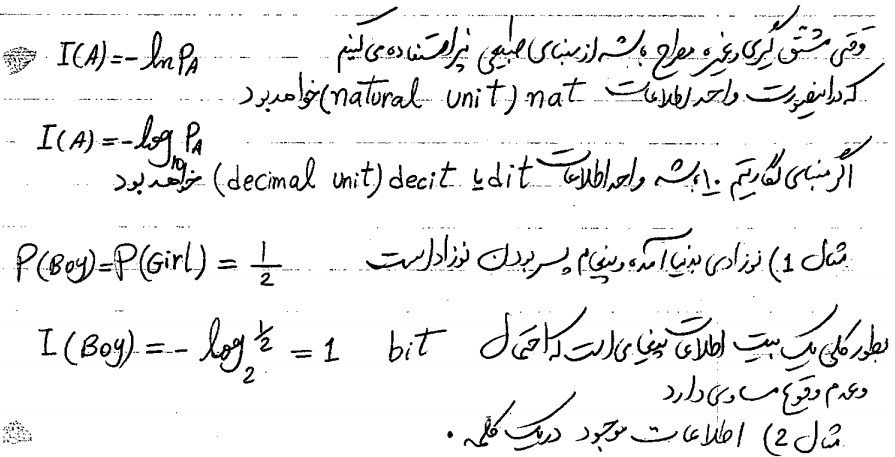 وقتی مشتق گیری و غیره مطرح باشد از مبنای طبیعی نیز استفاده می کنیم I(A) = - ln P_A
که در اینصورت واحد اطلاعات nat (natural unit) خواهد بود
I(A) = - log_10 P_A
اگر مبنای لگاریتم 10 باشد واحد اطلاعات dit یا decit (decimal unit) خواهد بود
مثال 1) نوزادی بدنیا آمده و پیغام پسر بودن نوزاد است P(Boy) = P(Girl) = 1/2
I(Boy) = - log_2 1/2 = 1 bit
بطور کلی یک بیت اطلاعات پیغامی است که احتمال
وعدم وقوع مساوی دارد
مثال 2) اطلاعات موجود در یک کلمه .